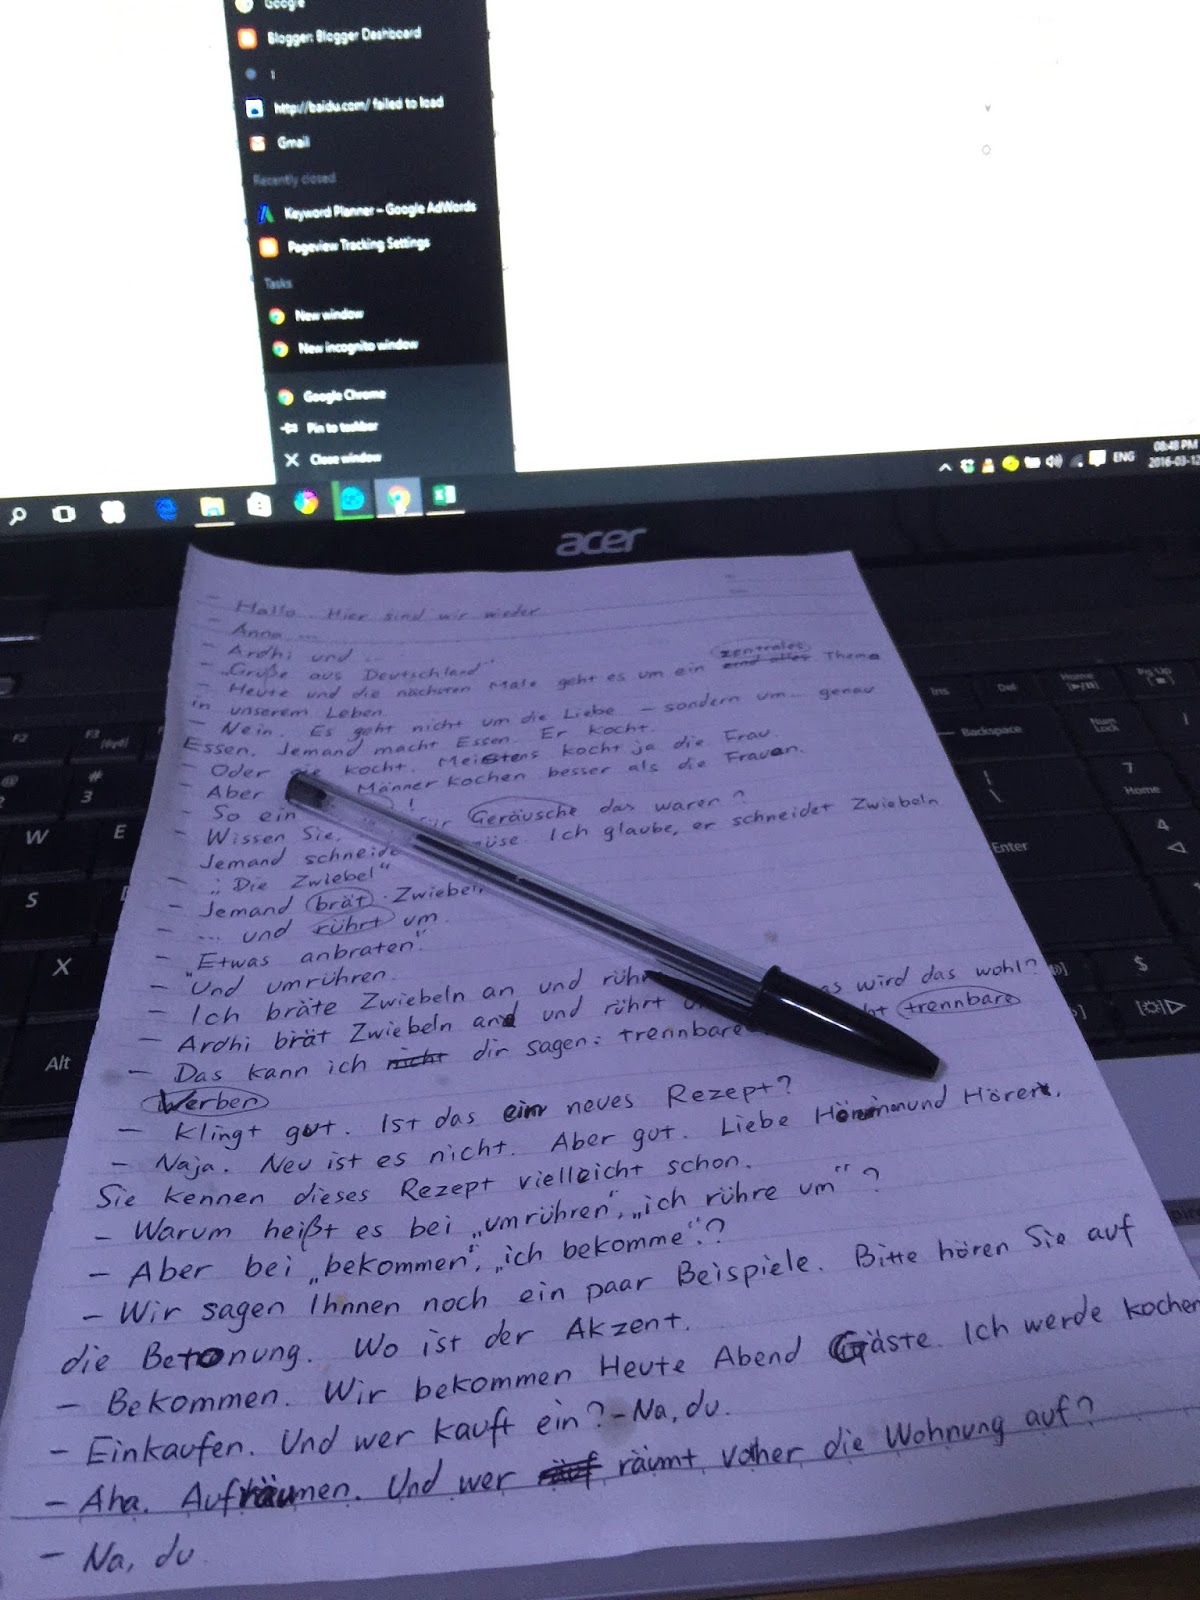 Google
Blogger: Blogger Dashboard
http://baidu.com/ failed to load
Gmail
Recently closed
Keyword Planner – Google AdWords
Pageview Tracking Settings
Tasks
New window
New incognito window
Google Chrome
Pin to taskbar
Close window
ENG
08:48 PM
2016-03-12
acer
F2
F3
Ins
Del
Home
Pg Up
Backspace
Num
Lock
7
Home
@
#
3
W
E
Enter
4
S
X
Alt
$
- Hallo. Hier sind wir wieder
- Anna ...
- Ardhi und ...
- „Grüße aus Deutschland"
- Heute und die nächsten Male geht es um ein zentrales Thema
in unserem Leben
- Nein. Es geht nicht um die Liebe - sondern um... genau
Essen. Jemand macht Essen. Er kocht.
- Oder sie kocht. Meistens kocht ja die Frau.
- Aber Männer kochen besser als die Frauen.
- So ein !
- Wissen Sie, für Geräusche das waren?
Jemand schneidet Ich glaube, er schneidet Zwiebeln
- „Die Zwiebel"
- Jemand brät Zwiebeln
- ... und rührt um
- „Etwas anbraten"
- Und umrühren.
- Ich bräte Zwiebeln an und rühre as wird das wohl?
- Ardhi brät Zwiebeln and und rührt trennbare
- Das kann ich nicht dir sagen: trennbare
Werben
- Klingt gut. Ist das ein neues Rezept?
- Naja. Neu ist es nicht. Aber gut. Liebe und Hörer.
Sie kennen dieses Rezept vielleicht schon.
- Warum heißt es bei „umrühren", „ich rühre um"?
- Aber bei „bekommen", „ich bekomme"?
- Wir sagen Ihnnen noch ein paar Beispiele. Bitte hören Sie auf
die Betonung. Wo ist der Akzent.
- Bekommen. Wir bekommen Heute Abend Gäste. Ich werde kochen
- Einkaufen. Und wer kauft ein? - Na, du.
- Aha. Aufräumen. Und wer räumt voher die Wohnung auf?
- Na, du.